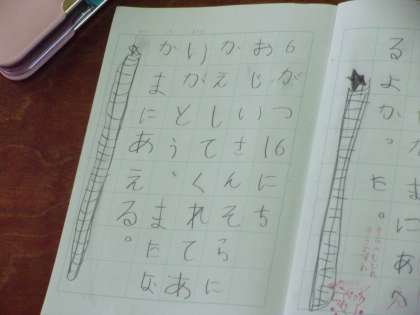 6がつ16にち
おじいさんそらに
かえしてくれてあ
りがとう、またな
かまにあえる。
にあ
るよかった。